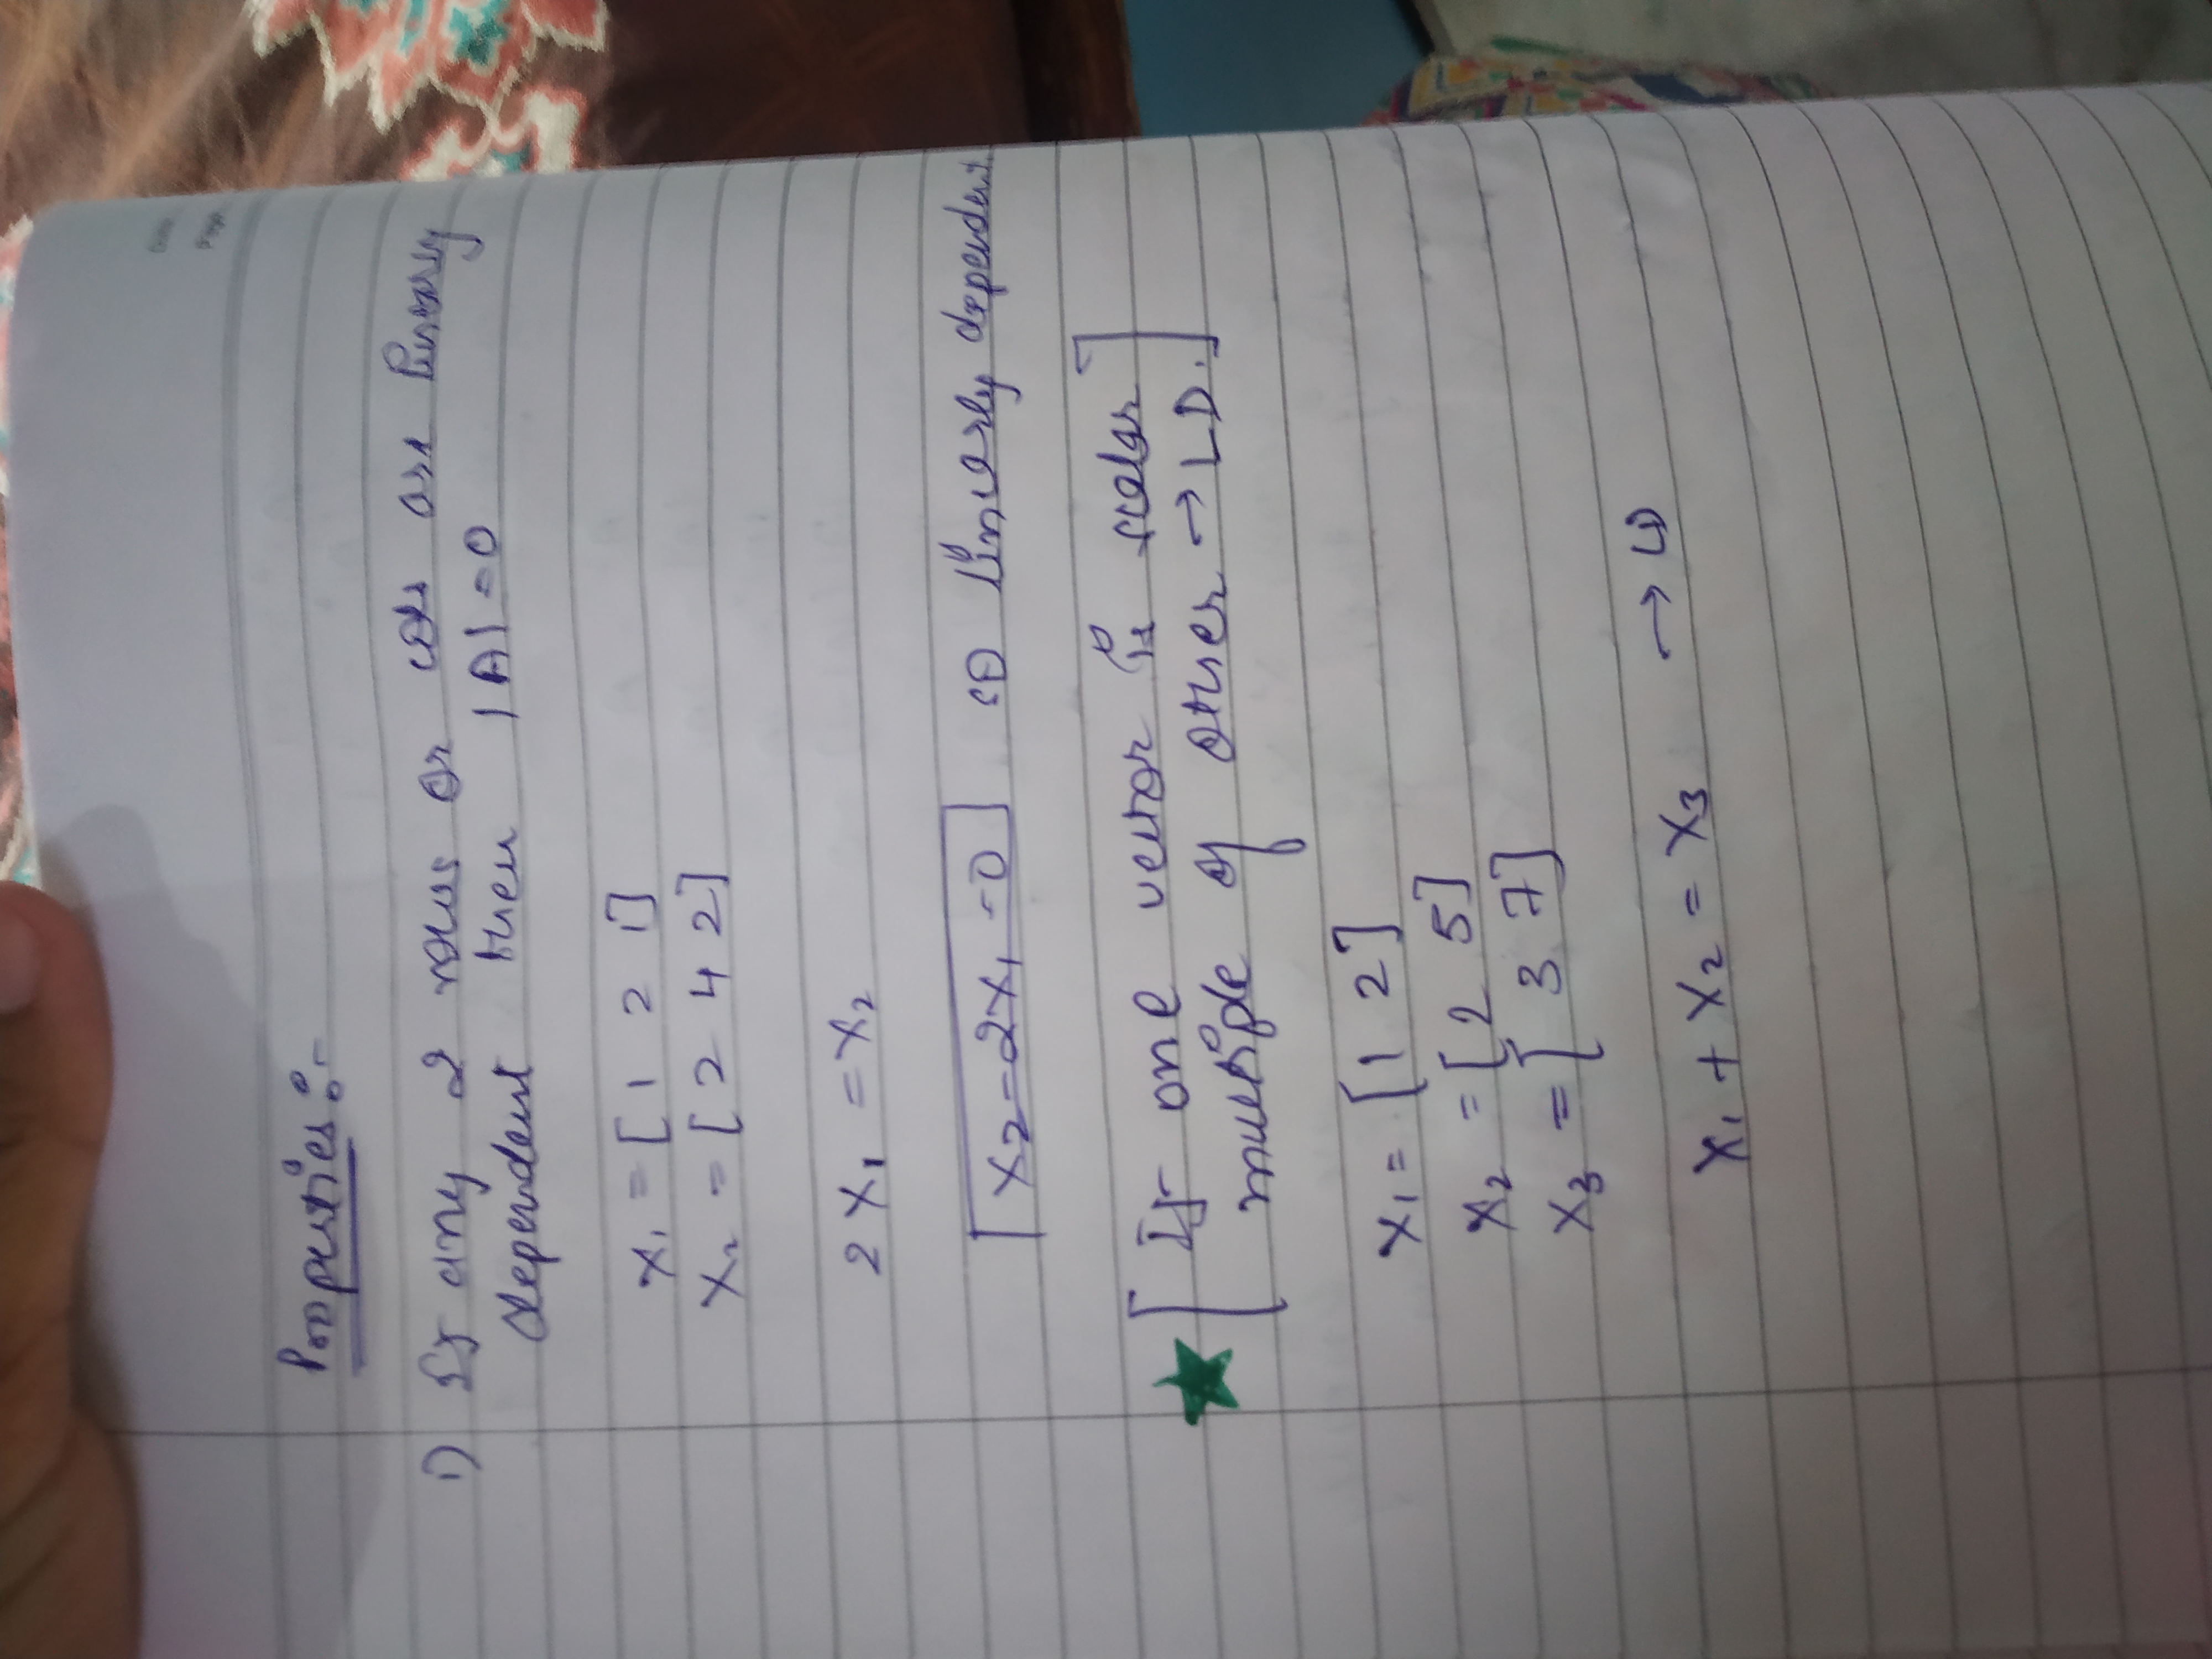 Date
Page
Properties :-
1) If any 2 rows or cols are linearly
dependent then |A| = 0
X₁ = [ 1 2 1]
X₂ = [ 2 4 2]
2 X₁ = X₂
X₂ - 2X₁ = 0 so linearly dependent.
★ [ If one vector is scalar
multiple of other → LD. ]
X₁ = [1 2]
X₂ = [2 5]
X₃ = [ 3 7]
X₁ + X₂ = X₃ → LD